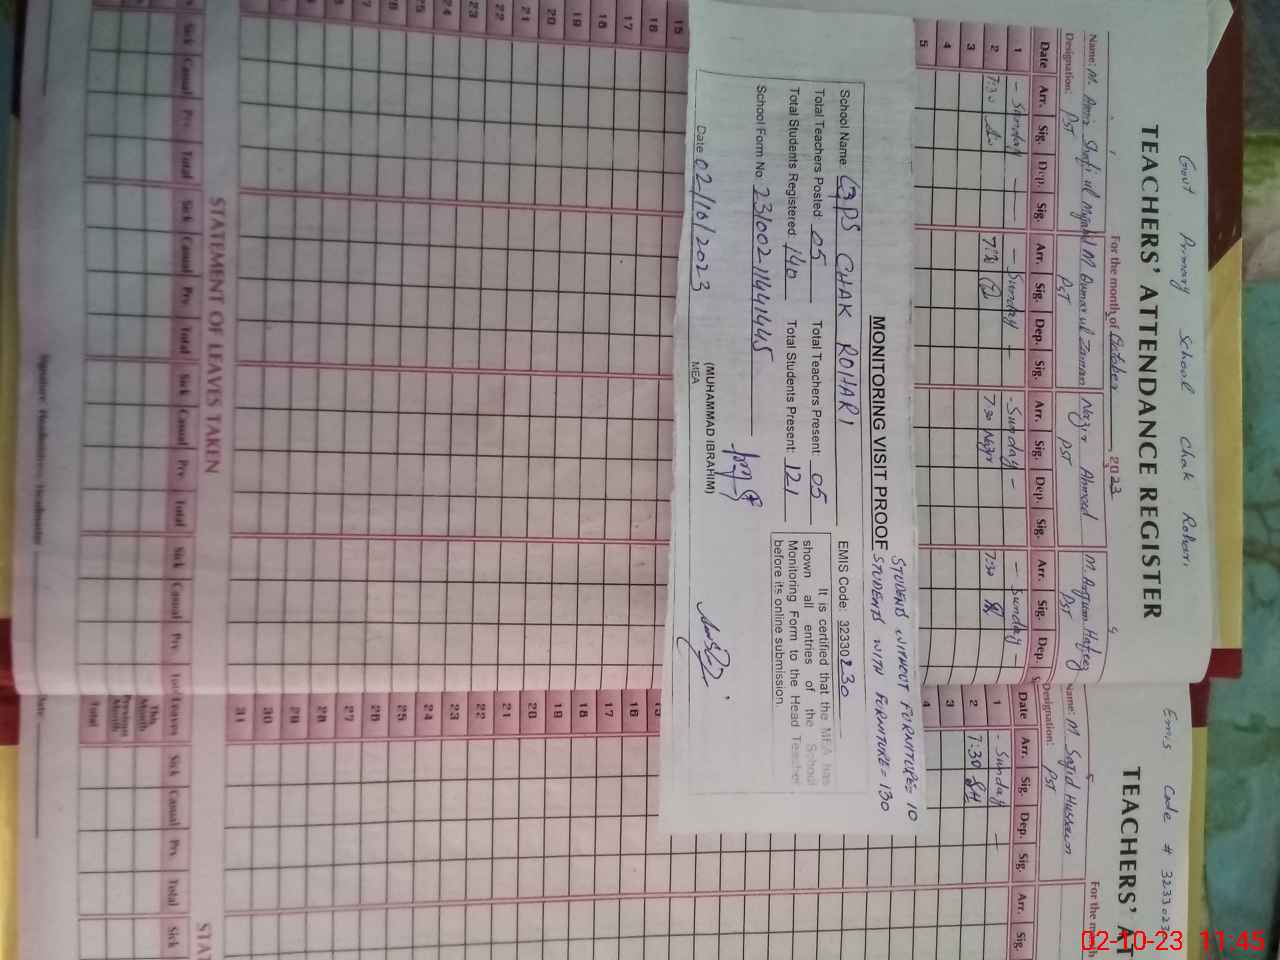 Govt Primary School Chak Rohari
TEACHERS' ATTENDANCE REGISTER
For the month of October, 2023
Name: M. Amir Shafi ul M. Qamar ul Zaman Nazir Ahmed M. Anjum Hafeez
Designation: PST PST PST PST
Date Arr. Sig. Dep. Sig. Arr. Sig. Dep. Sig. Arr. Sig. Dep. Sig. Arr. Sig. Dep.
1 - Sunday - - Sunday - - Sunday - - Sunday -
2 7:30 7:30 7:30 Nazir 7:30
3
4
5
STUDENTS WITHOUT FURNITURE = 10
STUDENTS WITH FURNITURE = 130
MONITORING VISIT PROOF
School Name GPS CHAK ROHARI EMIS Code: 32330230
Total Teachers Posted: 05 Total Teachers Present: 05
Total Students Registered: 140 Total Students Present: 121
School Form No. 23100211441445
It is certified that the MEA has
shown all entries of the School
Monitoring Form to the Head Teacher
before its online submission.
(MUHAMMAD IBRAHIM)
MEA
Date 02/10/2023
15
16
17
18
19
20
21
22
23
24
25
26
27
28
Sick Casual Prv. Total Sick Casual Prv. Total Sick Casual Prv. Total Sick Casual Prv. Total
STATEMENT OF LEAVES TAKEN
Signature Headmistress/Headmaster
Date
Emis Code # 3233023
TEACHERS' AT
For the m
Name: M Sajid Hussain
Designation: PST
Date Arr. Sig. Dep. Sig. Arr. Sig.
1 - Sunday -
2 7:30 SH
3
4
15
16
17
18
19
20
21
22
23
24
25
26
27
28
29
30
31
Leaves Sick Casual Prv. Total Sick
This Month
Previous Month
Total
STA
02-10-23 11:45